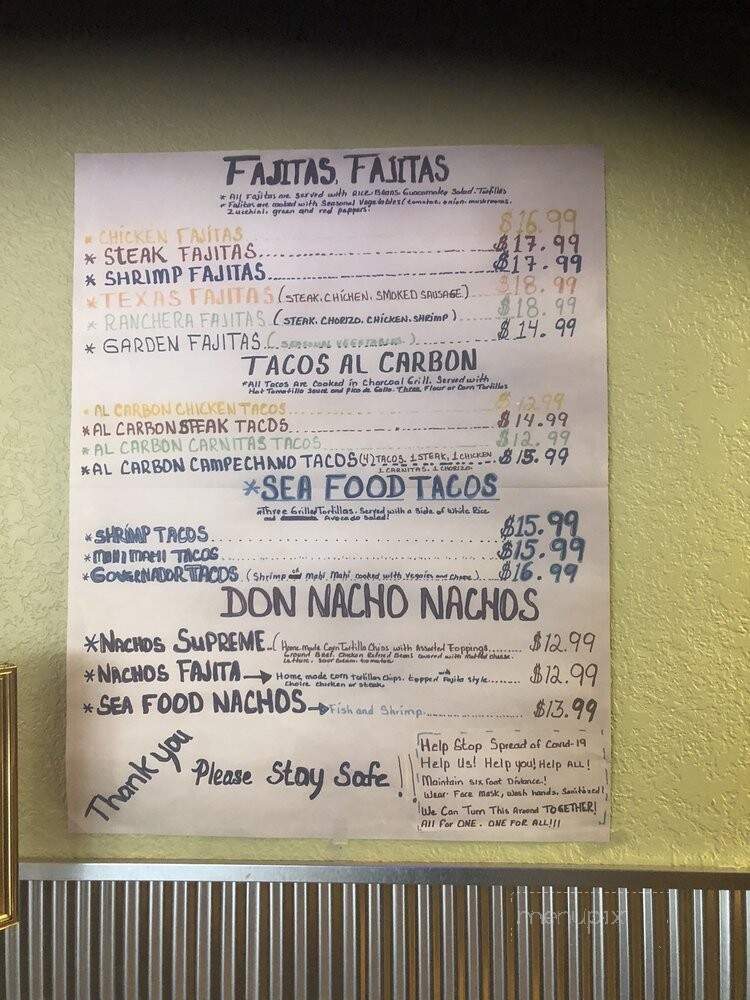 FAJITAS, FAJITAS
* All Fajitas are served with Rice. Beans. Guacamole, Salad. Tortillas
* Fajitas are cooked with Seasonal Vegetables (tomatoe, onion, mushrooms.
Zucchini, green and red peppers.
* CHICKEN FAJITAS $16.99
* STEAK FAJITAS $17.99
* SHRIMP FAJITAS $17.99
* TEXAS FAJITAS (STEAK. CHICHEN. SMOKED SAUSAGE) $18.99
* RANCHERA FAJITAS (STEAK, CHORIZO. CHICKEN. SHRIMP) $18.99
* GARDEN FAJITAS (SEASONAL VEGETABLES) $14.99
TACOS AL CARBON
*All Tacos Are Cooked in Charcoal Grill. Served with
Hot Tomatillo Sauce and Pico de Gallo. Three Flour or Corn Tortillas
* AL CARBON CHICKEN TACOS $12.99
*AL CARBON STEAK TACOS $14.99
* AL CARBON CARNITAS TACOS $12.99
*AL CARBON CAMPECHANO TACOS (4) TACOS. 1 STEAK, 1 CHICKEN $15.99
1 CARNITAS. 1 CHORIZO
*SEA FOOD TACOS
*Three Grilled Tortillas. Served with a Side of White Rice
and Avocado Salad!
*SHRIMP TACOS $15.99
*MAHI MAHI TACOS $15.99
*GOVERNADOR TACOS (Shrimp or Mahi Mahi cooked with Veggies and Cheese) $16.99
DON NACHO NACHOS
*NACHOS SUPREME (Home Made Corn Tortilla Chips with Assorted Toppings $12.99
Ground Beef. Chicken Refried Beans covered with melted cheese.
Lettuce, Sour Cream. tomatoe
*NACHOS FAJITA → Home made corn Tortillas Chips. topped with Fajita Style $12.99
Choice chicken or steak
* SEA FOOD NACHOS → Fish and Shrimp $13.99
Thank you
Please Stay Safe!!
Help Stop Spread of Covid-19
Help Us! Help you! Help ALL!
Maintain six foot Distance!
Wear Face Mask, wash hands. Sanitized!
We Can Turn This Around TOGETHER!
All for ONE. ONE FOR ALL!!!
menupix